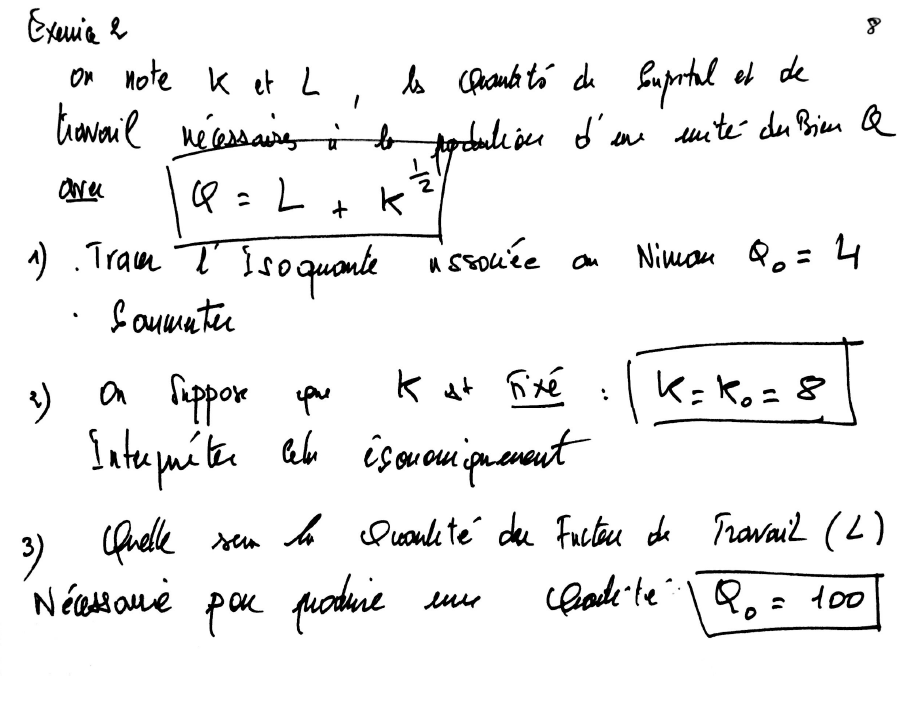 Exercice 2 8
On note K et L, les Quantités de Capital et de
travail nécessaires à la production d'une unité du Bien Q
avec Q = L + K^{1/2}
1) . Tracer l'Isoquante associée au Niveau Q₀ = 4
. Commenter
2) On Suppose que K est Fixé : K = K₀ = 8
Interpréter Cela économiquement
3) Quelle sera la Quantité du Facteur de Travail (L)
Nécessaire pour produire une Quantité Q₀ = 100